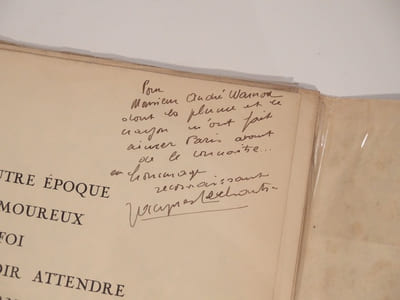 Pour
Monsieur André Warnod
dont la plume et le
crayon m'ont fait
aimer Paris avant
de le connaître...
en hommage
reconnaissant
UTRE ÉPOQUE
MOUREUX
FOI
OIR ATTENDRE